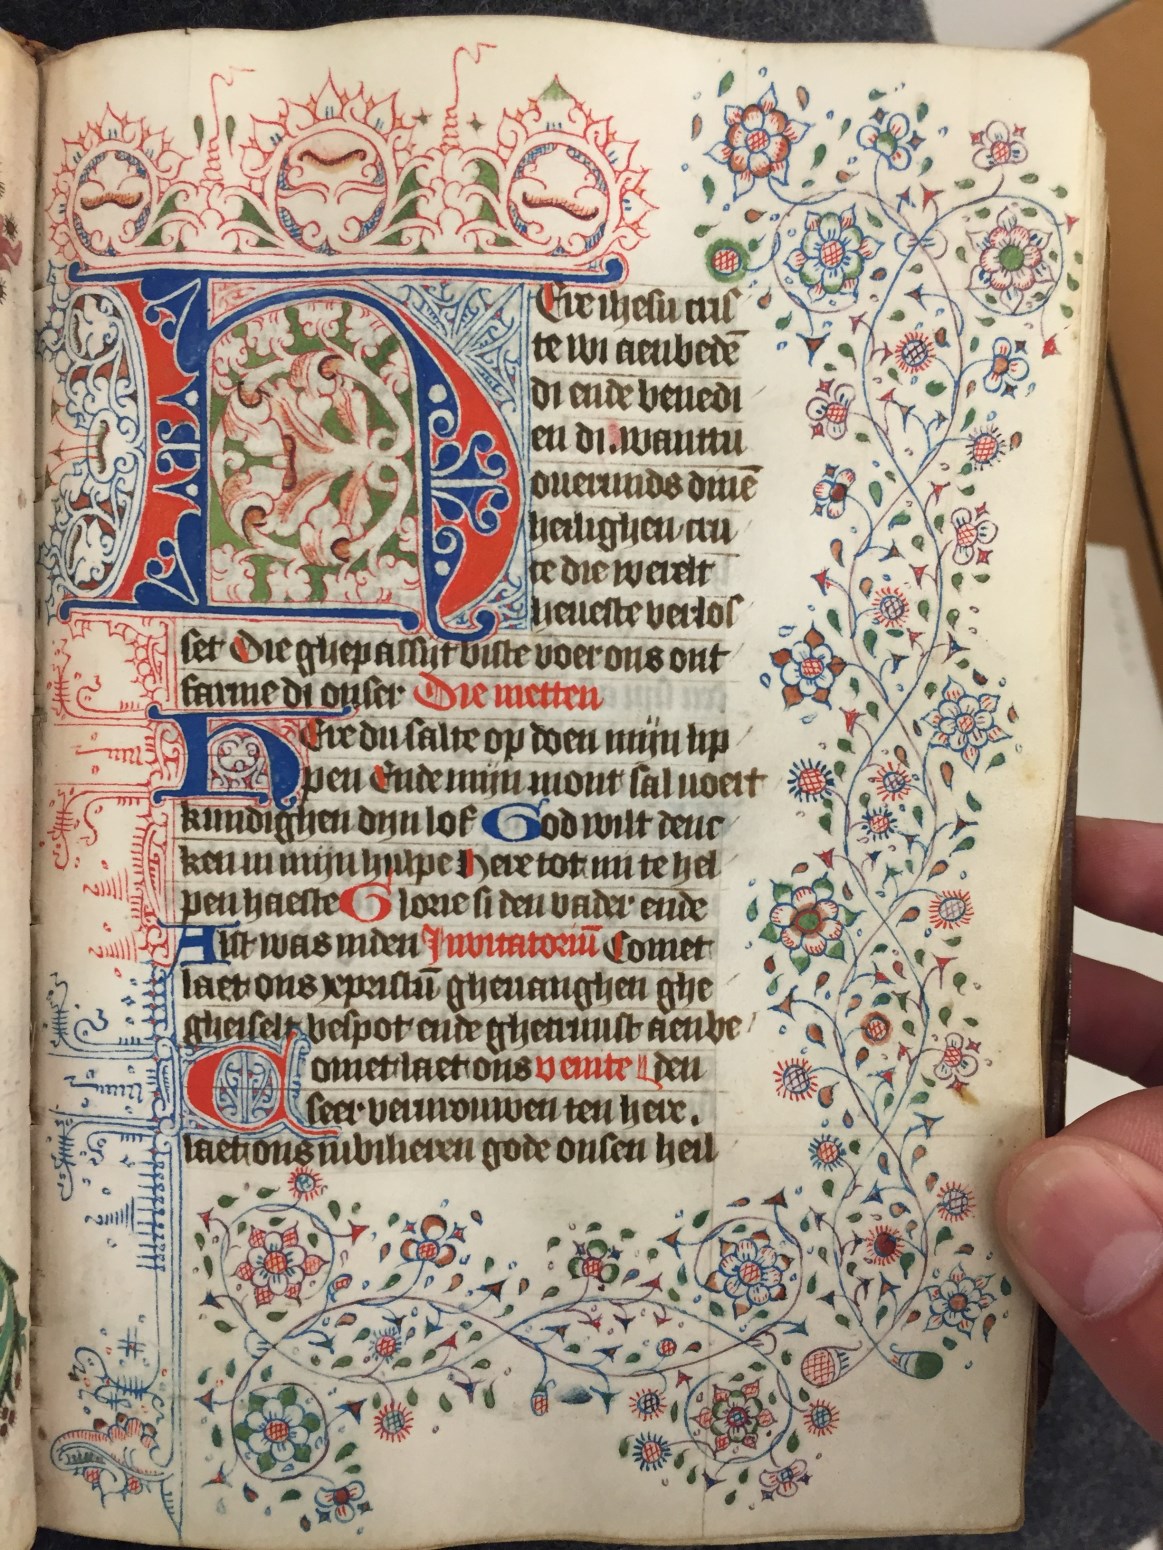 HEre ihesu cris
te wi aenbedē
di ende benedi
en di. want du
ouermids dinē
heilighen cru
te die werelt
heueste verlos
set Die ghepassijt biste voer ons ont
farme di onser Die metten
HEre du salte op doen mijn lip
pen Ende mijn mont sal voert
kundighen dijn lof God wilt denc
ken in mijn hulpe Here tot mi te hel
pen haeste Glorie si den vader ende
Alst was inden Inuitatoriū Comet
laet ons xpristū gheuanghen ghe
gheiselt bespot ende ghecruust aenbe
Comet laet ons venite den
seer verurouwen ten here.
laet ons iubilieren gode onsen heil